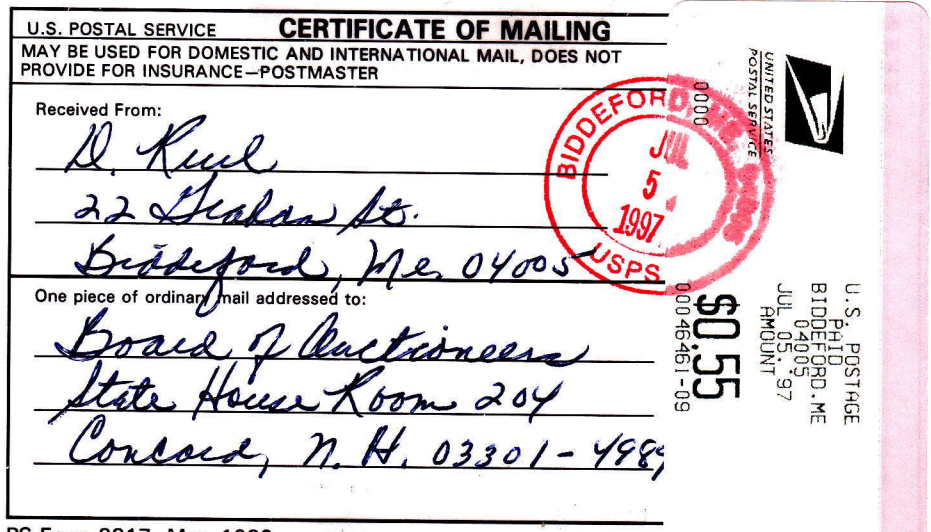 U.S. POSTAL SERVICE CERTIFICATE OF MAILING
MAY BE USED FOR DOMESTIC AND INTERNATIONAL MAIL, DOES NOT
PROVIDE FOR INSURANCE—POSTMASTER
Received From:
D. Ruel
22 Graham St.
Biddeford, Me. 04005
One piece of ordinary mail addressed to:
Board of Auctioneers
State House Room 204
Concord, N. H. 03301-4989
BIDDEFORD, ME
JUL
5
1997
USPS
UNITED STATES
POSTAL SERVICE
0000
U.S. POSTAGE
PAID
BIDDEFORD.ME
04005
JUL 05.'97
AMOUNT
$0.55
00046461-09